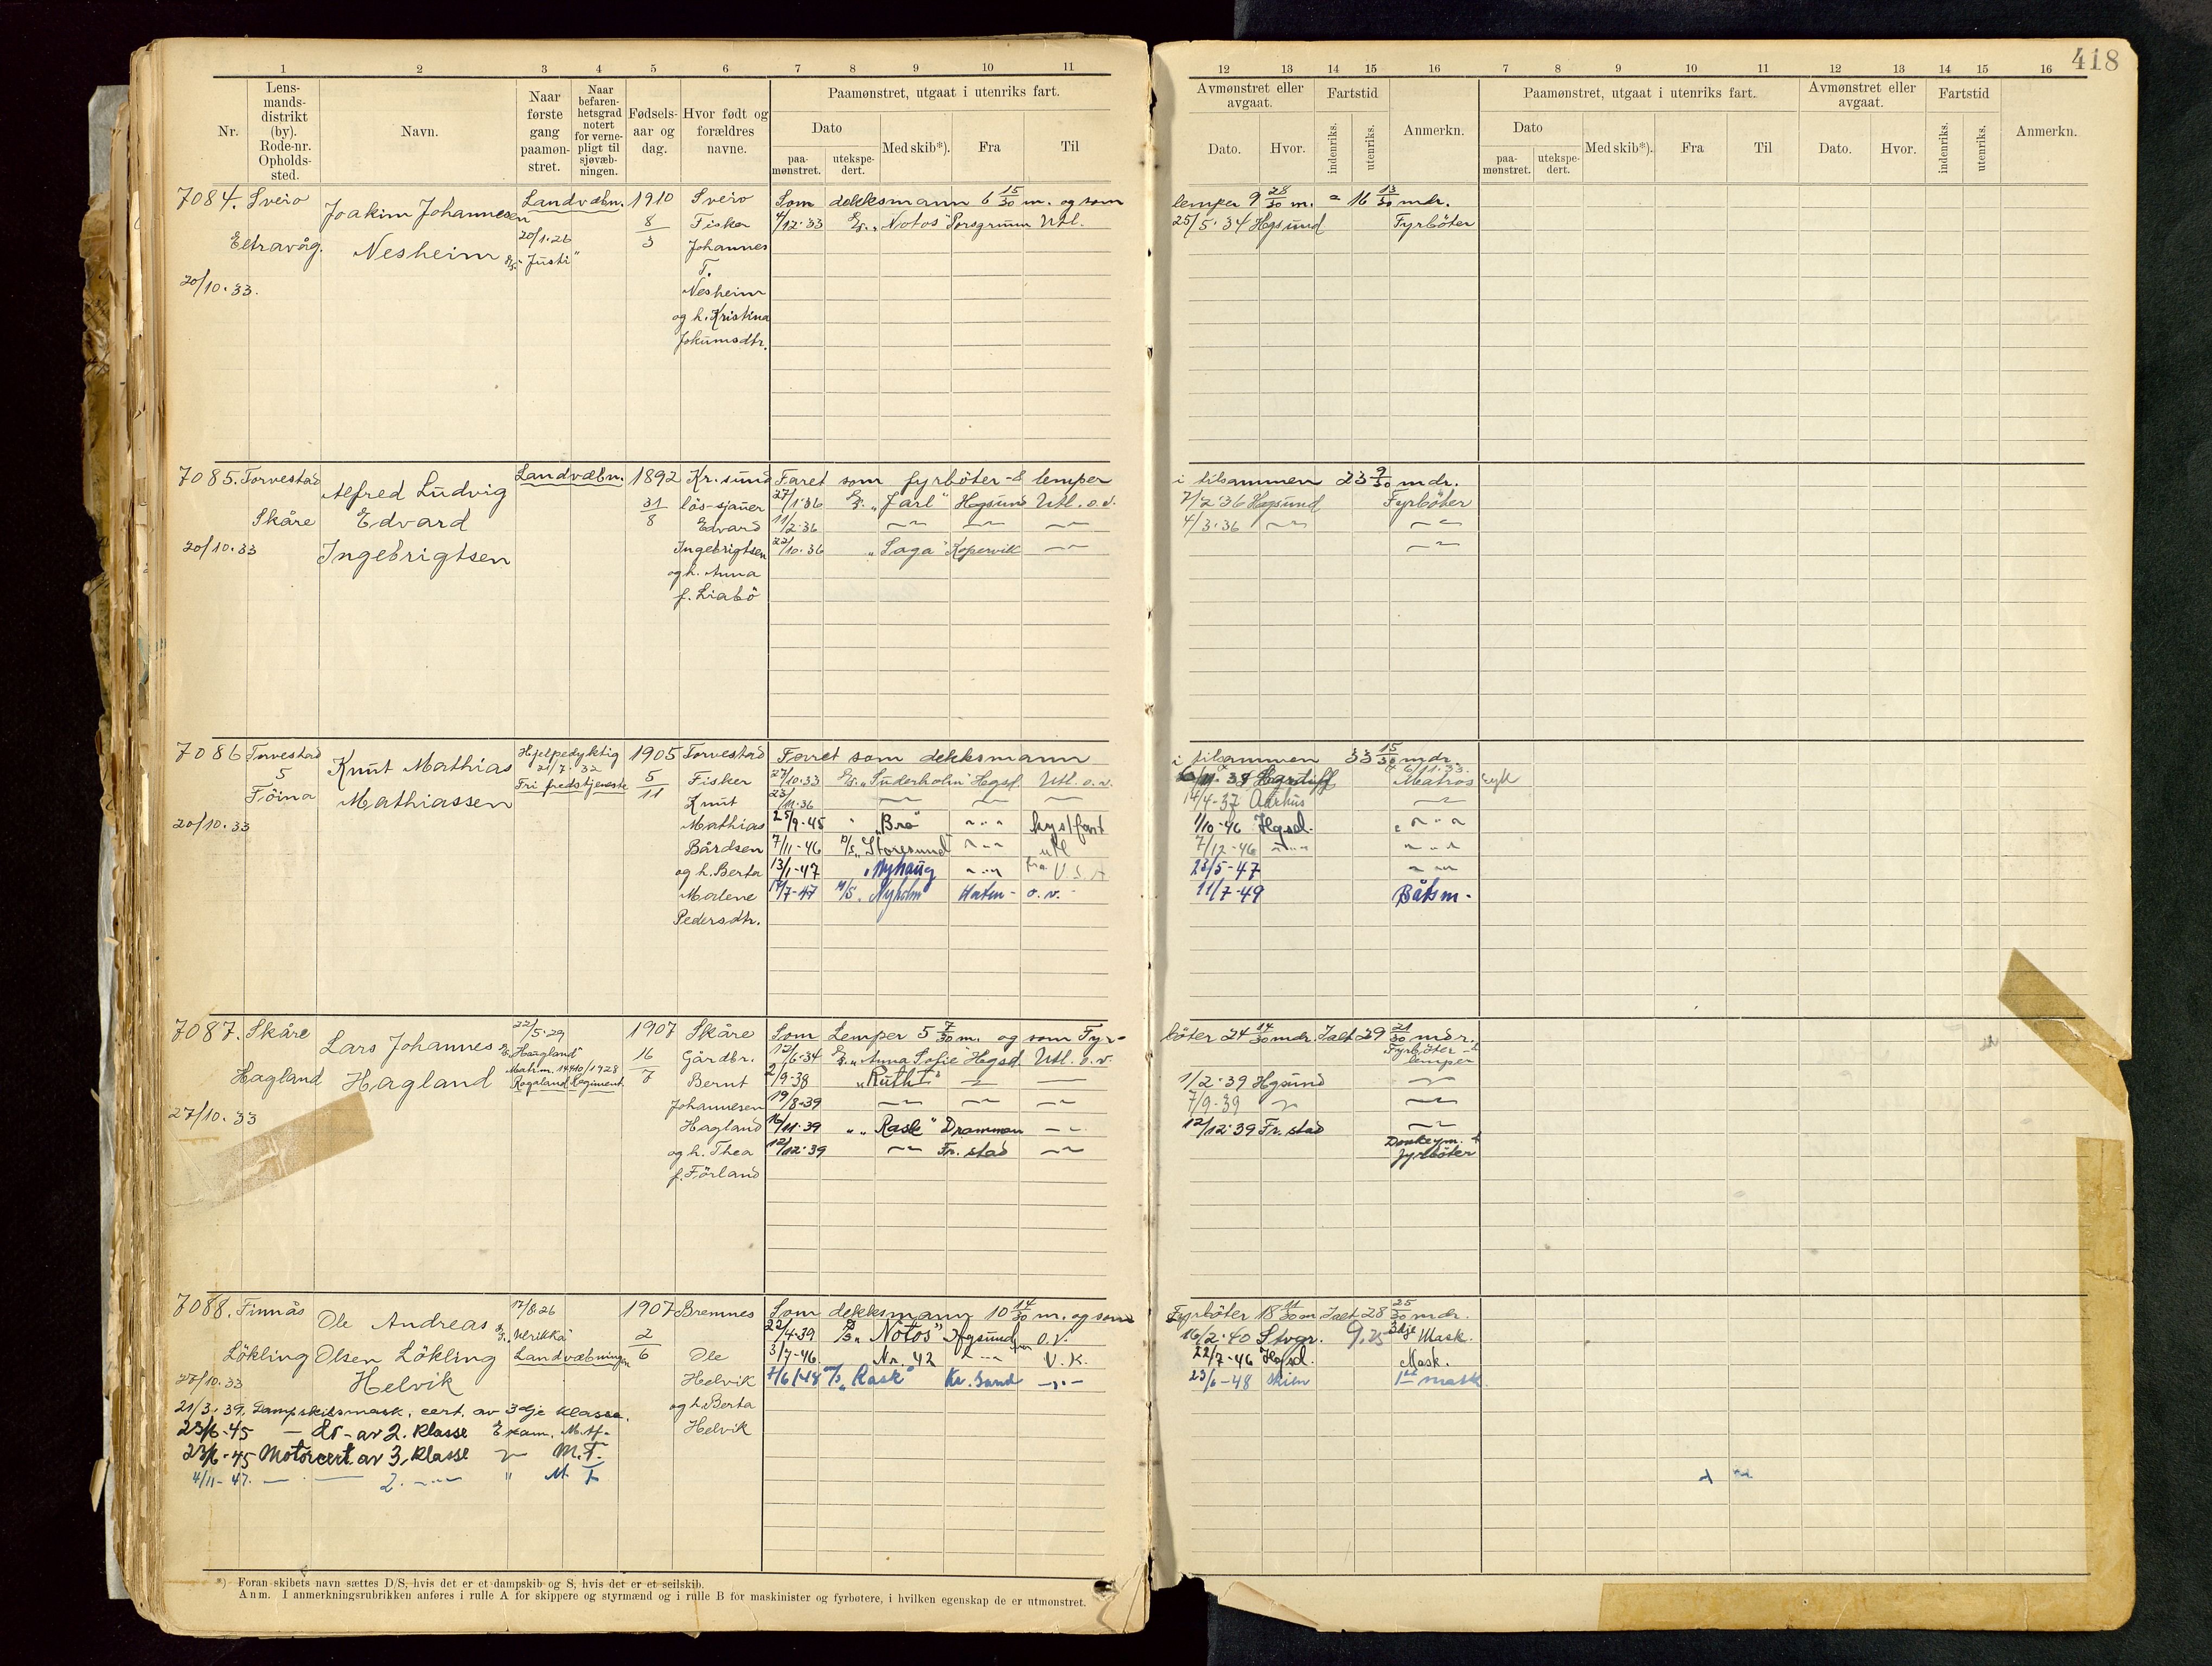 418
1 2 3 4 5 6 7 8 9 10 11
12 13 14 15 16 7 8 9 10 11 12 13 14 15 16
Nr.
Lens-
mands-
distrikt
(by).
Rode-nr.
Opholds-
sted.
Navn.
Naar
første
gang
paamøn-
stret.
Naar
befaren-
hetsgrad
notert
for verne-
pligt til
sjøvæb-
ningen.
Fødsels-
aar og
dag.
Hvor født og
forældres
navne.
Paamønstret, utgaat i utenriks fart.
Dato
paa-
mønstret.
utekspe-
dert.
Med skib*).
Fra
Til
Avmønstret eller
avgaat.
Dato.
Hvor.
Fartstid
indenriks.
utenriks.
Anmerkn.
Paamønstret, utgaat i utenriks fart.
Dato
paa-
mønstret.
utekspe-
dert.
Med skib*).
Fra
Til
Avmønstret eller
avgaat.
Dato.
Hvor.
Fartstid
indenriks.
utenriks.
Anmerkn.
7084. Sveio
Eltravåg.
20/10.33.
Joakim Johannesen
Nesheim
Landvæbn.
20/1.26
"Justi"
1910
8
3
Sveio
Fisker
Johannes
T.
Nesheim
og h. Kristina
Jokumsdtr.
Som dekksmann 6 15/30 m. og som lemper 9 28/30 m. = 16 13/30 mdr.
4/12.33 "Notos" Porsgrunn Utl. 25/5.34 Hgsund Fyrböter
7085. Torvestad
Skåre
20/10.33
Alfred Ludvig
Edvard
Ingebrigtsen
Landvæbn.
1892
31
8
Kr.sund
lös-sjauer
Edvard
Ingebrigtsen
og h. Anna
f. Liabö
Faret som fyrböter & lemper i tilsammen 23 9/30 mdr.
27/1.36 "Jarl" Hgsund Utl. o.v. 7/2.36 Hgsund Fyrböter
11/2.36 4/3.36
22/10.36 "Saga" Kopervik
7086 Torvestad
5
Töina
20/10.33
Knut Mathias
Mathiassen
Hjelpedyktig
21/7.32
Fri fredstjeneste
1905
5
11
Torvestad
Fisker
Knut
Mathias
Bårdsen
og h. Berta
Malene
Pedersdtr.
Faret som dekksmann i tilsammen 33 15/30 mdr.
6/11.33.
27/10.33 "Suderholm" Hgsd. Utl. o.v. Matros syk
23/11.36 14/4-37 Aarhus
25/9-45 "Bro" kystfart 1/10-46 Hgsd.
7/11-46 "Storesund" utl 7/12-46
13/1-47 "Nyhaug fra U S A 23/5-47
14/7-47 M/S. Nyholm o.v. 11/7-49 Båtsm.
7087. Skåre
Hagland
27/10.33
Lars Johannes
Hagland
22/5.29
"Hagland"
Matr.m. 14440/1928
Rogaland Regiment
1907
16
7
Skåre
Gårdbr.
Bernt
Johannesen
Hagland
og h. Thea
f. Förland
Som Lemper 5 7/30 m. og som Fyr-böter 24 14/30 mdr. Ialt 29 21/30 mdr.
12/6.34 "Anna Sofie" Hgsd. Utl. o.v. Fyrböter & lemper
2/9.38 "Ruth I" 1/2.39 Hgsund
19/8-39 7/9.39
16/11.39 "Rask" Drammen 12/12.39 Fr.stad
12/12.39 Fr.stad Donkeym. &
fyrböter
7088. Finnås
Lökling
27/10.33
Ole Andreas
Olsen Lökling
Helvik
17/8.26
"Ulrikka"
Landvæbningen
1907
2
6
Bremnes
Ole
Helvik
og h. Berta
Helvik
Som dekksmann 10 14/30 m. og som Fyrböter 18 11/30 m. Ialt 28 25/30 mdr.
22/4.39 "Notos" Hgsund o.v. 16/2.40 Stvgr. 9.25 3dje Mask.
3/7-46. Nr. 42 U.K. 22/7-46 Hgsd. Mask.
7/6 1-48 "Rask" Kr.sand 23/6-48 Skien 1ste mask.
21/3.39. Dampskibsmask. cert. av 3dje klasse.
23/6-45 — D — av 2. klasse Exam. M.Af.
23/6-45 Motorcert. av 3. klasse M.T.
4/11-47. 2. M.T.
*) Foran skibets navn sættes D/S, hvis det er et dampskib og S, hvis det er et seilskib.
Anm. I anmerkningsrubrikken anføres i rulle A for skippere og styrmænd og i rulle B for maskinister og fyrbøtere, i hvilken egenskap de er utmønstret.